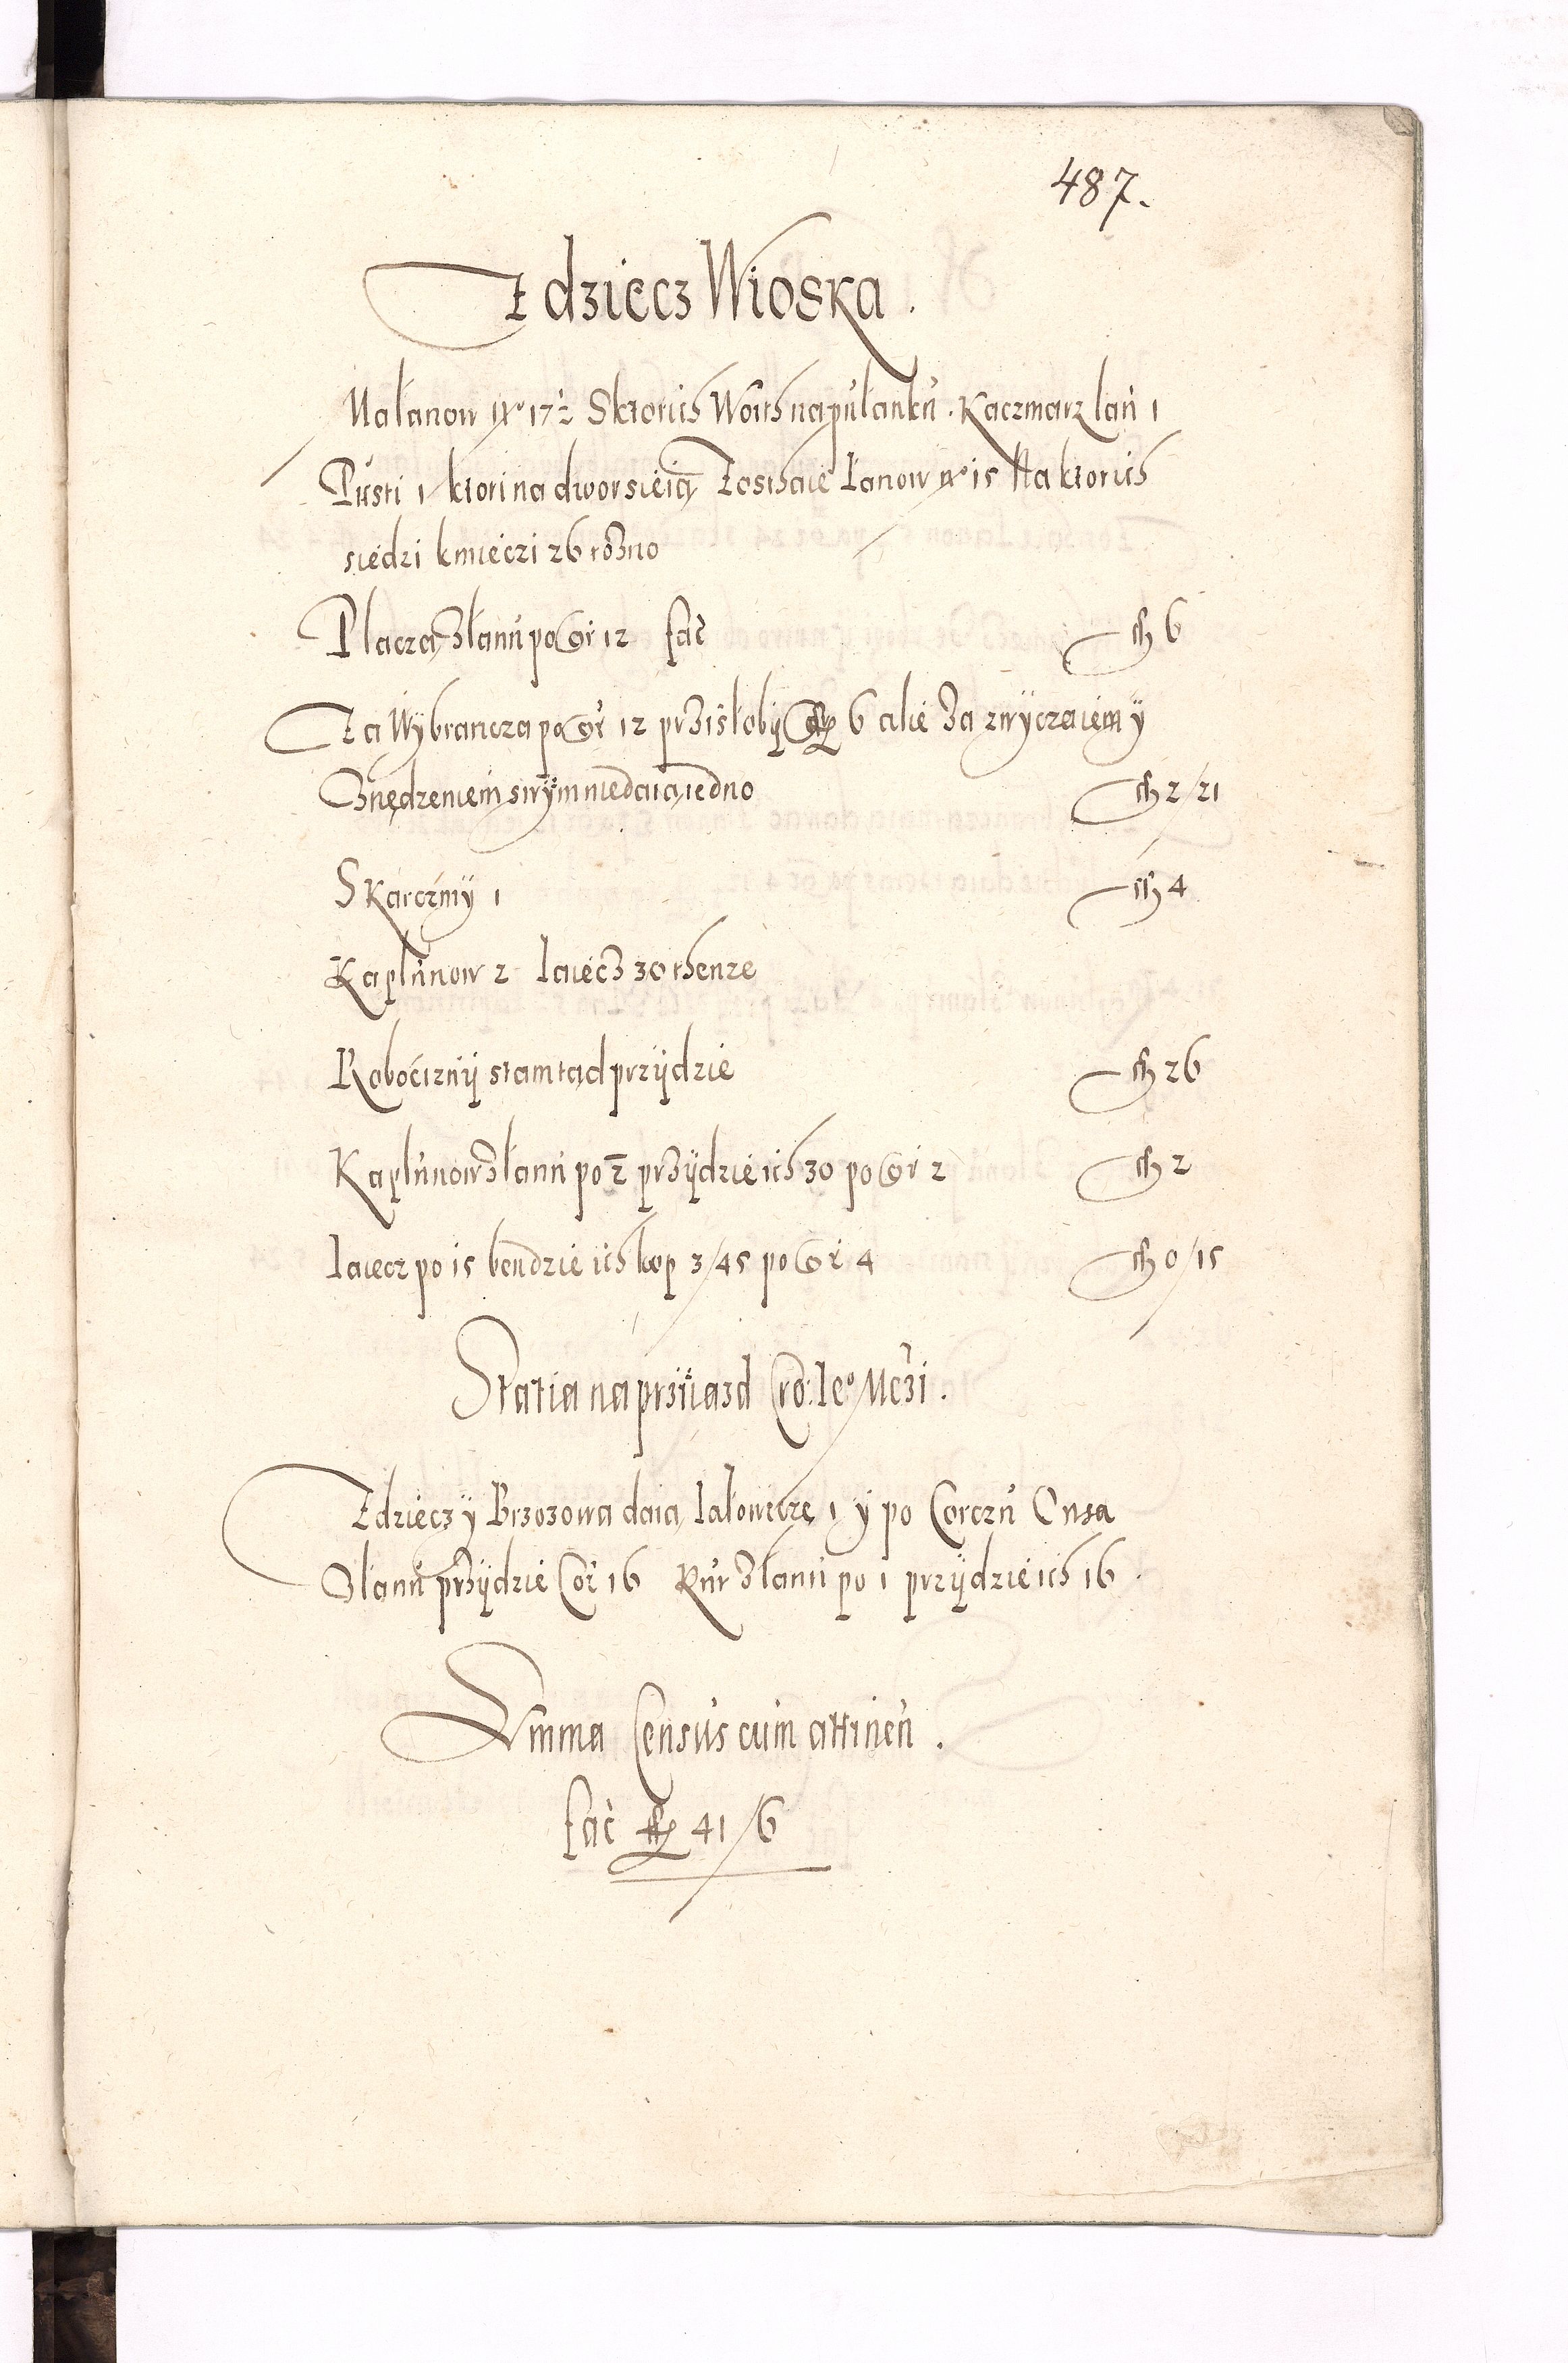 487.
Zdziecz Wioska.
Ma łanow nro 17½ Sktorich Woith na pułanku. Kaczmarz łan 1
Pusti 1 ktori na dwor sieią Zosthaie łanow nro 15 Na ktorich
siedzi kmieczi 26 rozno
Placzą Złanu po Gr 12 fac 6
Za Wybrancza po Gr 12 przisłoby 6 alie Za zwyczaiem y
Znędzeniem swym niedaią iedno 2/21
S Karczmy 1 4
Kapłunow 2 Iaiecz 30 thenze
Roboćizny stamtąd przydzie 26
Kapłunow Złanu po 2 przydzie ich 30 po Gr 2 2
Iaiecz po 15 bendzie ich kop 3/45 po Gr 4 0/15
Statia na przyiazd Cro: Ieo Mczi.
Zdziecz y Brzozowa daią Iałowicze 1 y po Corczu Owsa
Złanu przydzie Cor 16 Kur Złanu po 1 przydzie ich 16.
Summa Census cum attinen.
fac 41/6